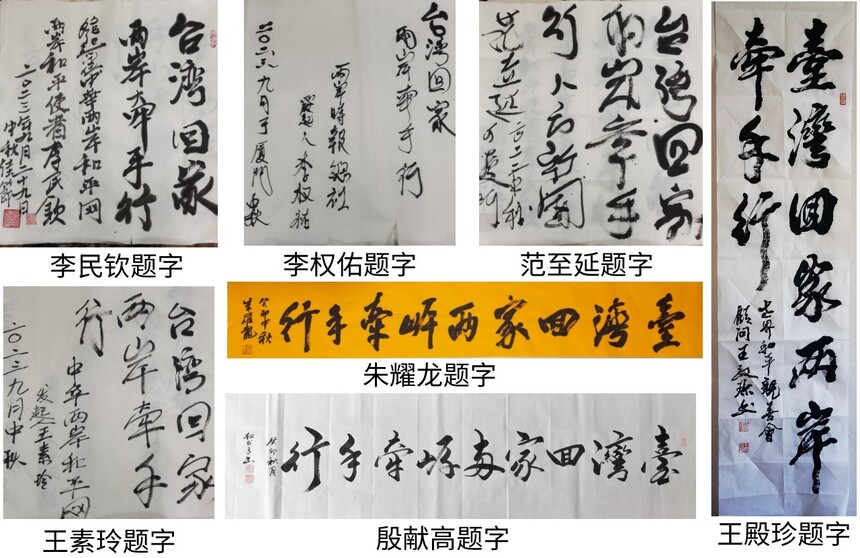 台湾回家
两岸牵手行
中华两岸和平网
两岸和平使者李民钦
二〇二三年九月二十九日
中秋佳节
李民钦题字
台湾回家
两岸牵手行
两岸时报
李权佑
二〇二三九月于厦门
李权佑题字
台湾回家
两岸牵手
行
范至延
范至延题字
臺灣回家两岸
牵手行
世界和平
顾问王殿珍
王殿珍题字
台湾回家
两岸牵手
行
中华两岸和平网
发起人王素玲
二〇二三九月中秋
王素玲题字
臺灣回家两岸牵手行
癸卯中秋
朱耀龙
朱耀龙题字
臺灣回家两岸牵手行
癸卯秋月
殷献高题字